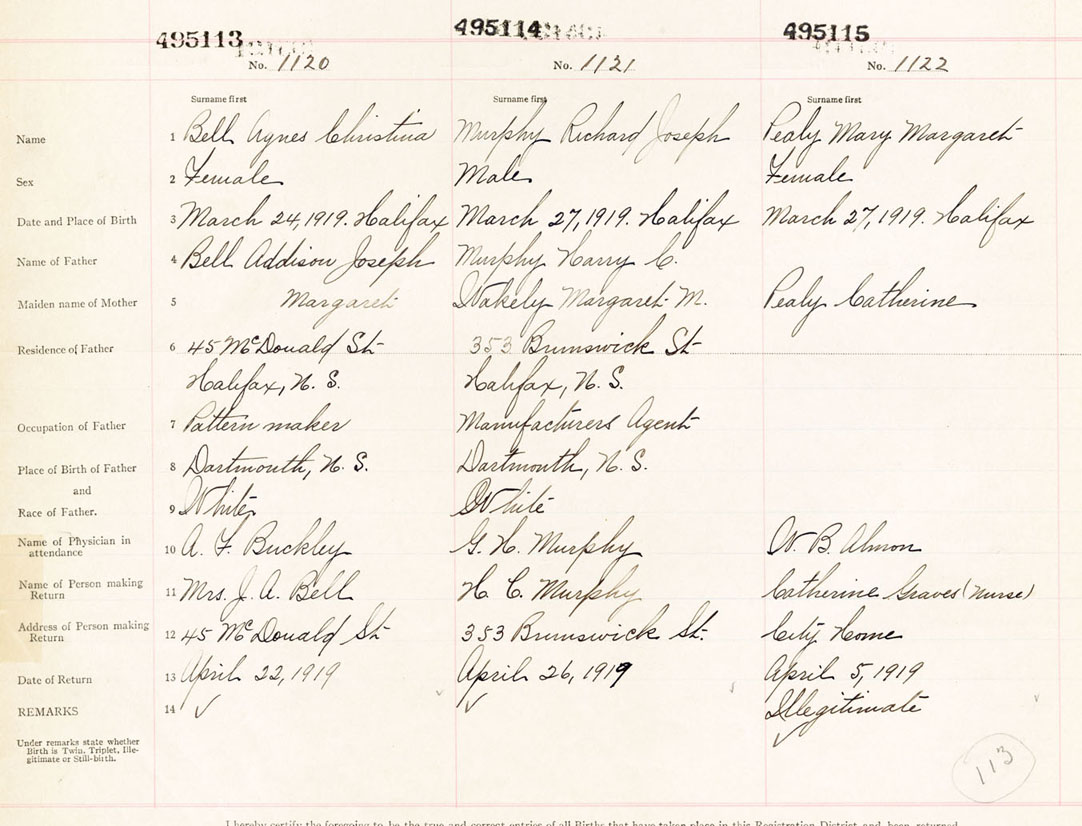 495113 495114 495115
No. 1120 No. 1121 No. 1122
Surname first Surname first Surname first
Name 1 Bell Agnes Christina Murphy Richard Joseph Pealy Mary Margaret
Sex 2 Female Male Female
Date and Place of Birth 3 March 24, 1919. Halifax March 27, 1919. Halifax March 27, 1919. Halifax
Name of Father 4 Bell Addison Joseph Murphy Harry C.
Maiden name of Mother 5 Margaret Wakely Margaret M. Pealy Catherine
Residence of Father 6 45 McDonald St 353 Brunswick St
Halifax, N. S. Halifax, N. S.
Occupation of Father 7 Pattern maker Manufacturers Agent
Place of Birth of Father 8 Dartmouth, N. S. Dartmouth, N. S.
and
Race of Father. 9 White White
Name of Physician in attendance 10 A. F. Buckley G. H. Murphy W. B. Almon
Name of Person making Return 11 Mrs. J. A. Bell H. C. Murphy Catherine Graves (nurse)
Address of Person making Return 12 45 McDonald St 353 Brunswick St. City Home
Date of Return 13 April 22, 1919 April 26, 1919 April 5, 1919
REMARKS 14 ✓ ✓ Illegitimate
Under remarks state whether
Birth is Twin, Triplet, Ille-
gitimate or Still-birth.
113
I hereby certify the foregoing to be the true and correct entries of all Births that have taken place in this Registration District and been returned